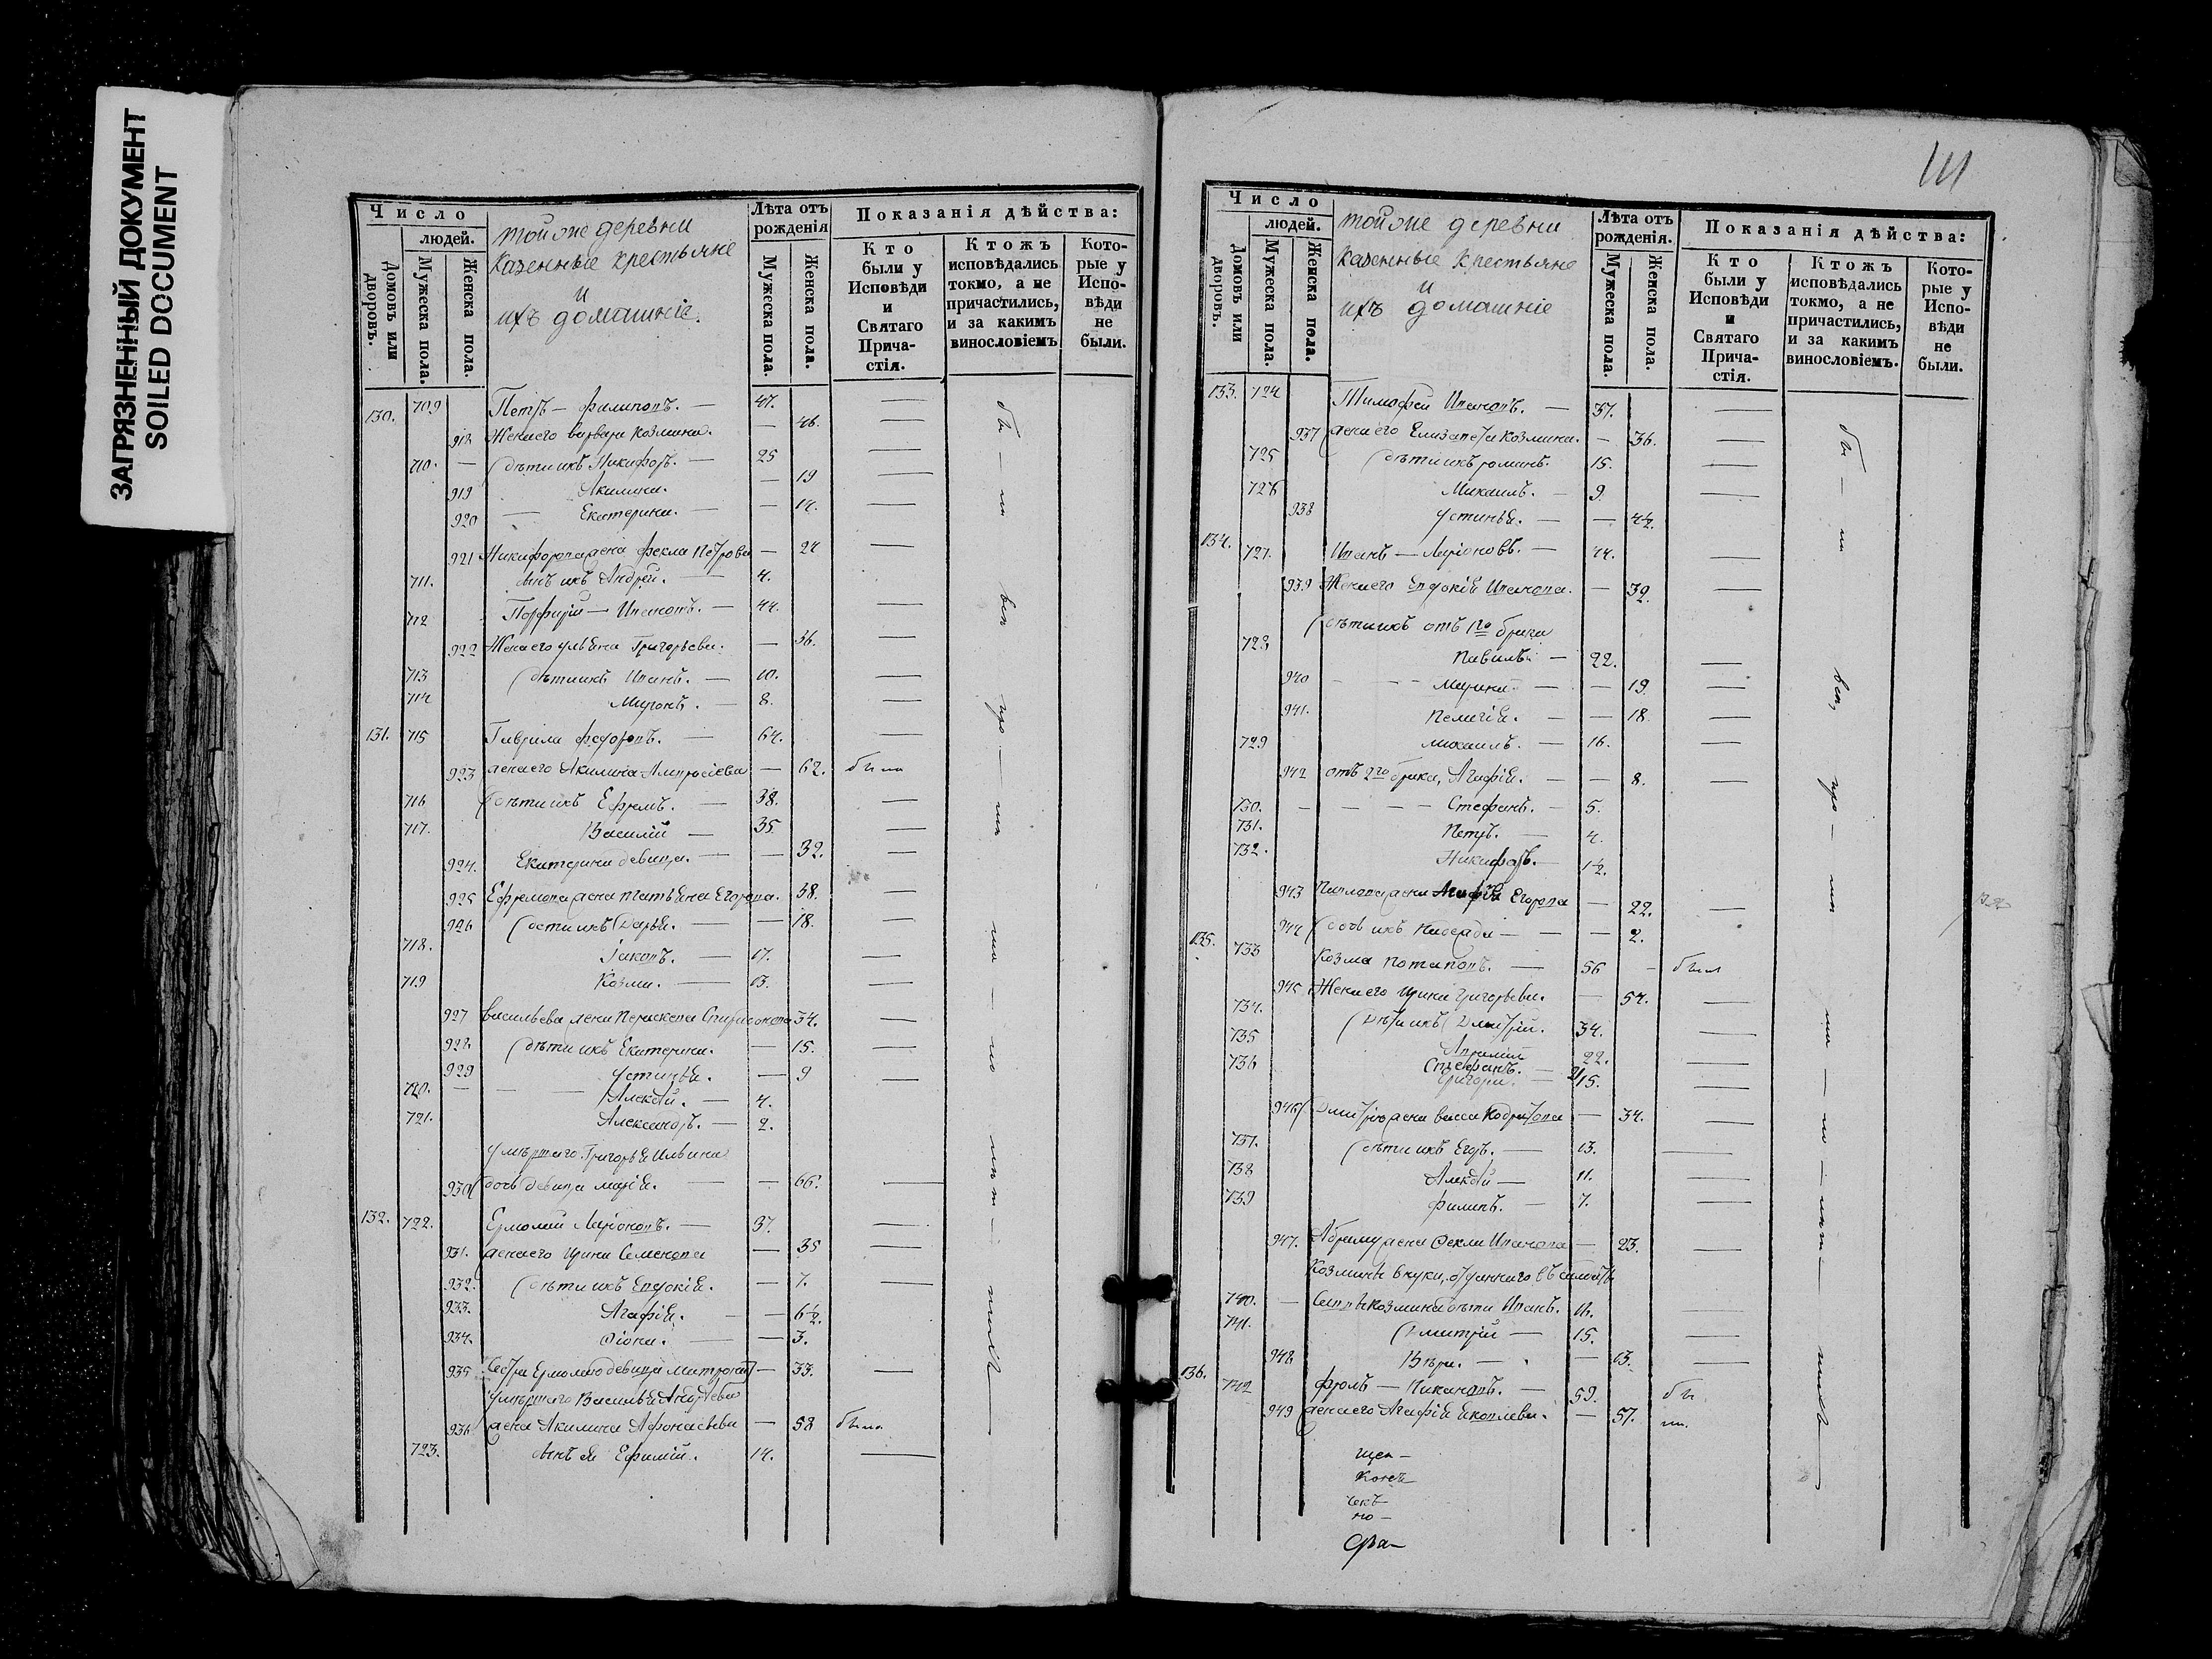 ЗАГРЯЗНЕННЫЙ ДОКУМЕНТ
SOILED DOCUMENT
Число
людей.
Домовъ или дворовъ.
Мужеска пола.
Женска пола.
тойже деревни
казенные крестьяне
и
ихъ домашніе.
Лѣта отъ рожденія
Мужеска пола.
Женска пола.
Показанія дѣйства:
Кто были у Исповѣди и Святаго Прича- стія.
Ктожъ исповѣдались токмо, а не причастились, и за какимъ винословіемъ
Кото- рые у Испо- вѣди не были.
130. 709 Петръ — Филиповъ. — 47.
918 Жена его варвара Козмина. — 46.
710. — дѣти ихъ Никифоръ. — 25
919 Акилина. — 19
920 — Екатерина. — — 14.
921 Никифорова жена фекла Петрова — 24
711. сынъ ихъ Андрей. — 4.
712 Порфирій — Ивановъ. — 44.
922 Жена его ульяна Григорьева. — 36.
713 дѣти ихъ Иванъ. — 10.
714 Миронъ. — 8.
131. 715 Гаврила федоровъ. — 64.
923 жена его Акилина — 62. была
716 дѣти ихъ Ефремъ. — 38.
717. Василій — 35
924. Екатерина девица. — — 32.
925 Ефремова жена татьяна Егорова. 38.
926 дѣти ихъ Дарья. — — 18.
718. Іаковъ. — 17.
719 Козма. — 13.
927 васильева жена Параскева 34.
928 дѣти ихъ Екатерина. — 15.
929 устинья. — 9
720. — — — Алексѣй. — 4.
721. Александръ. — 2.
умершаго Григорья Ильина
930 дочь девица марія. — — 66.
132. 722. Ермолай Ларіоновъ. — 37.
931. жена его Ирина Семенова — 35
932. дѣти ихъ Евдокія. — 7.
933. Агафія. — 6½.
934. — 3.
935 Сестра девица — 33.
умершаго Василья Андреева
936 жена Акилина Афонасьева — 58 была
723. сынъ ея Ефимій. 14.
111
Число
людей.
Домовъ или дворовъ.
Мужеска пола.
Женска пола.
тойже деревни
казенные крестьяне
и
ихъ домашніе
Лѣта отъ рожденія.
Мужеска пола.
Женска пола.
Показанія дѣйства:
Кто были у Исповѣди и Святаго Прича- стія.
Ктожъ исповѣдались токмо, а не причастились, и за какимъ винословіемъ.
Кото- рые у Испо- вѣди не были.
133. 724 Тимофей Ивановъ. — 37.
937 жена его Елизавета Козмина. — 36.
725 дѣти ихъ романъ. 15.
726 Михаилъ. — 9.
938 устинья. — — 4½.
134. 727. Иванъ — Ларіоновъ. — 44.
939 Жена его Евдокія Иванова. — 39.
дѣти ихъ отъ 1го брака
728 Павилъ — 22.
940 — — — Марина — — 19.
941. Пелагія. — — 18.
729 михаилъ. — 16.
942 отъ 2го брака, Агафія. — — 8.
730. — — — — Стефанъ. — 5.
731. Петръ. — 4.
732. Никифоръ. — 1½.
943 Павлова жена Агафія Егорова — 22.
944 дочь ихъ — — 2.
135. 733 Козма Потаповъ. — 56 — былъ
945 Жена его Ирина григорьева. — 54.
734. Дѣти ихъ Дмитрій. 34.
735 22.
736 Стефанъ. —
Григорій. — 15.
946 жена васса — 34.
737. дѣти ихъ Егоръ. — 13.
738 Алексѣй — 11.
739 филипъ. — 7.
947. жена Фекла Иванова — 23.
Козмины внуки,
740. — дѣти Иванъ. 16.
741. Дмитрій — 15.
948 Вѣра. — — 13.
136. 742 фролъ — — 59. бы
949 жена его Агафія Яковлева. — 57. ли.